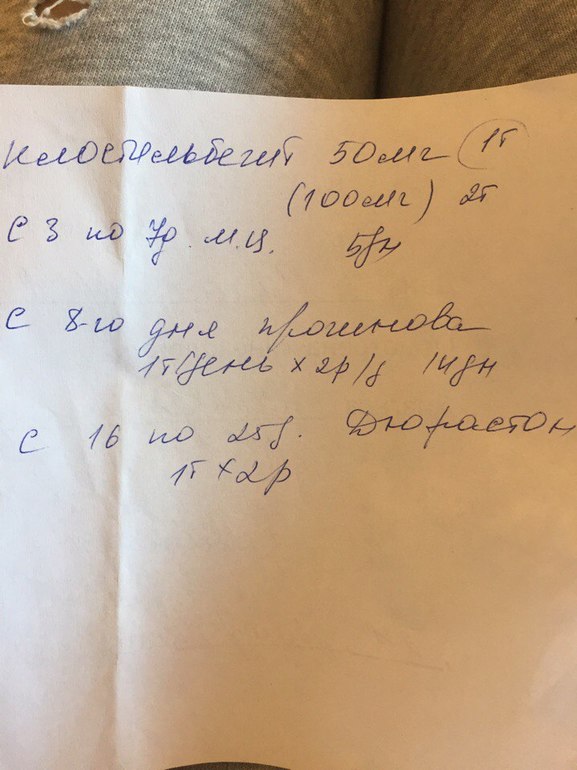 Клостильбегит 50мг (1т
(100мг) 2т
с 3 по 7д. м.ц. 5дн
с 8-го дня прогинова
1т/день х 2р/д 14дн
с 16 по 25д. Дюрастон
1т х 2р